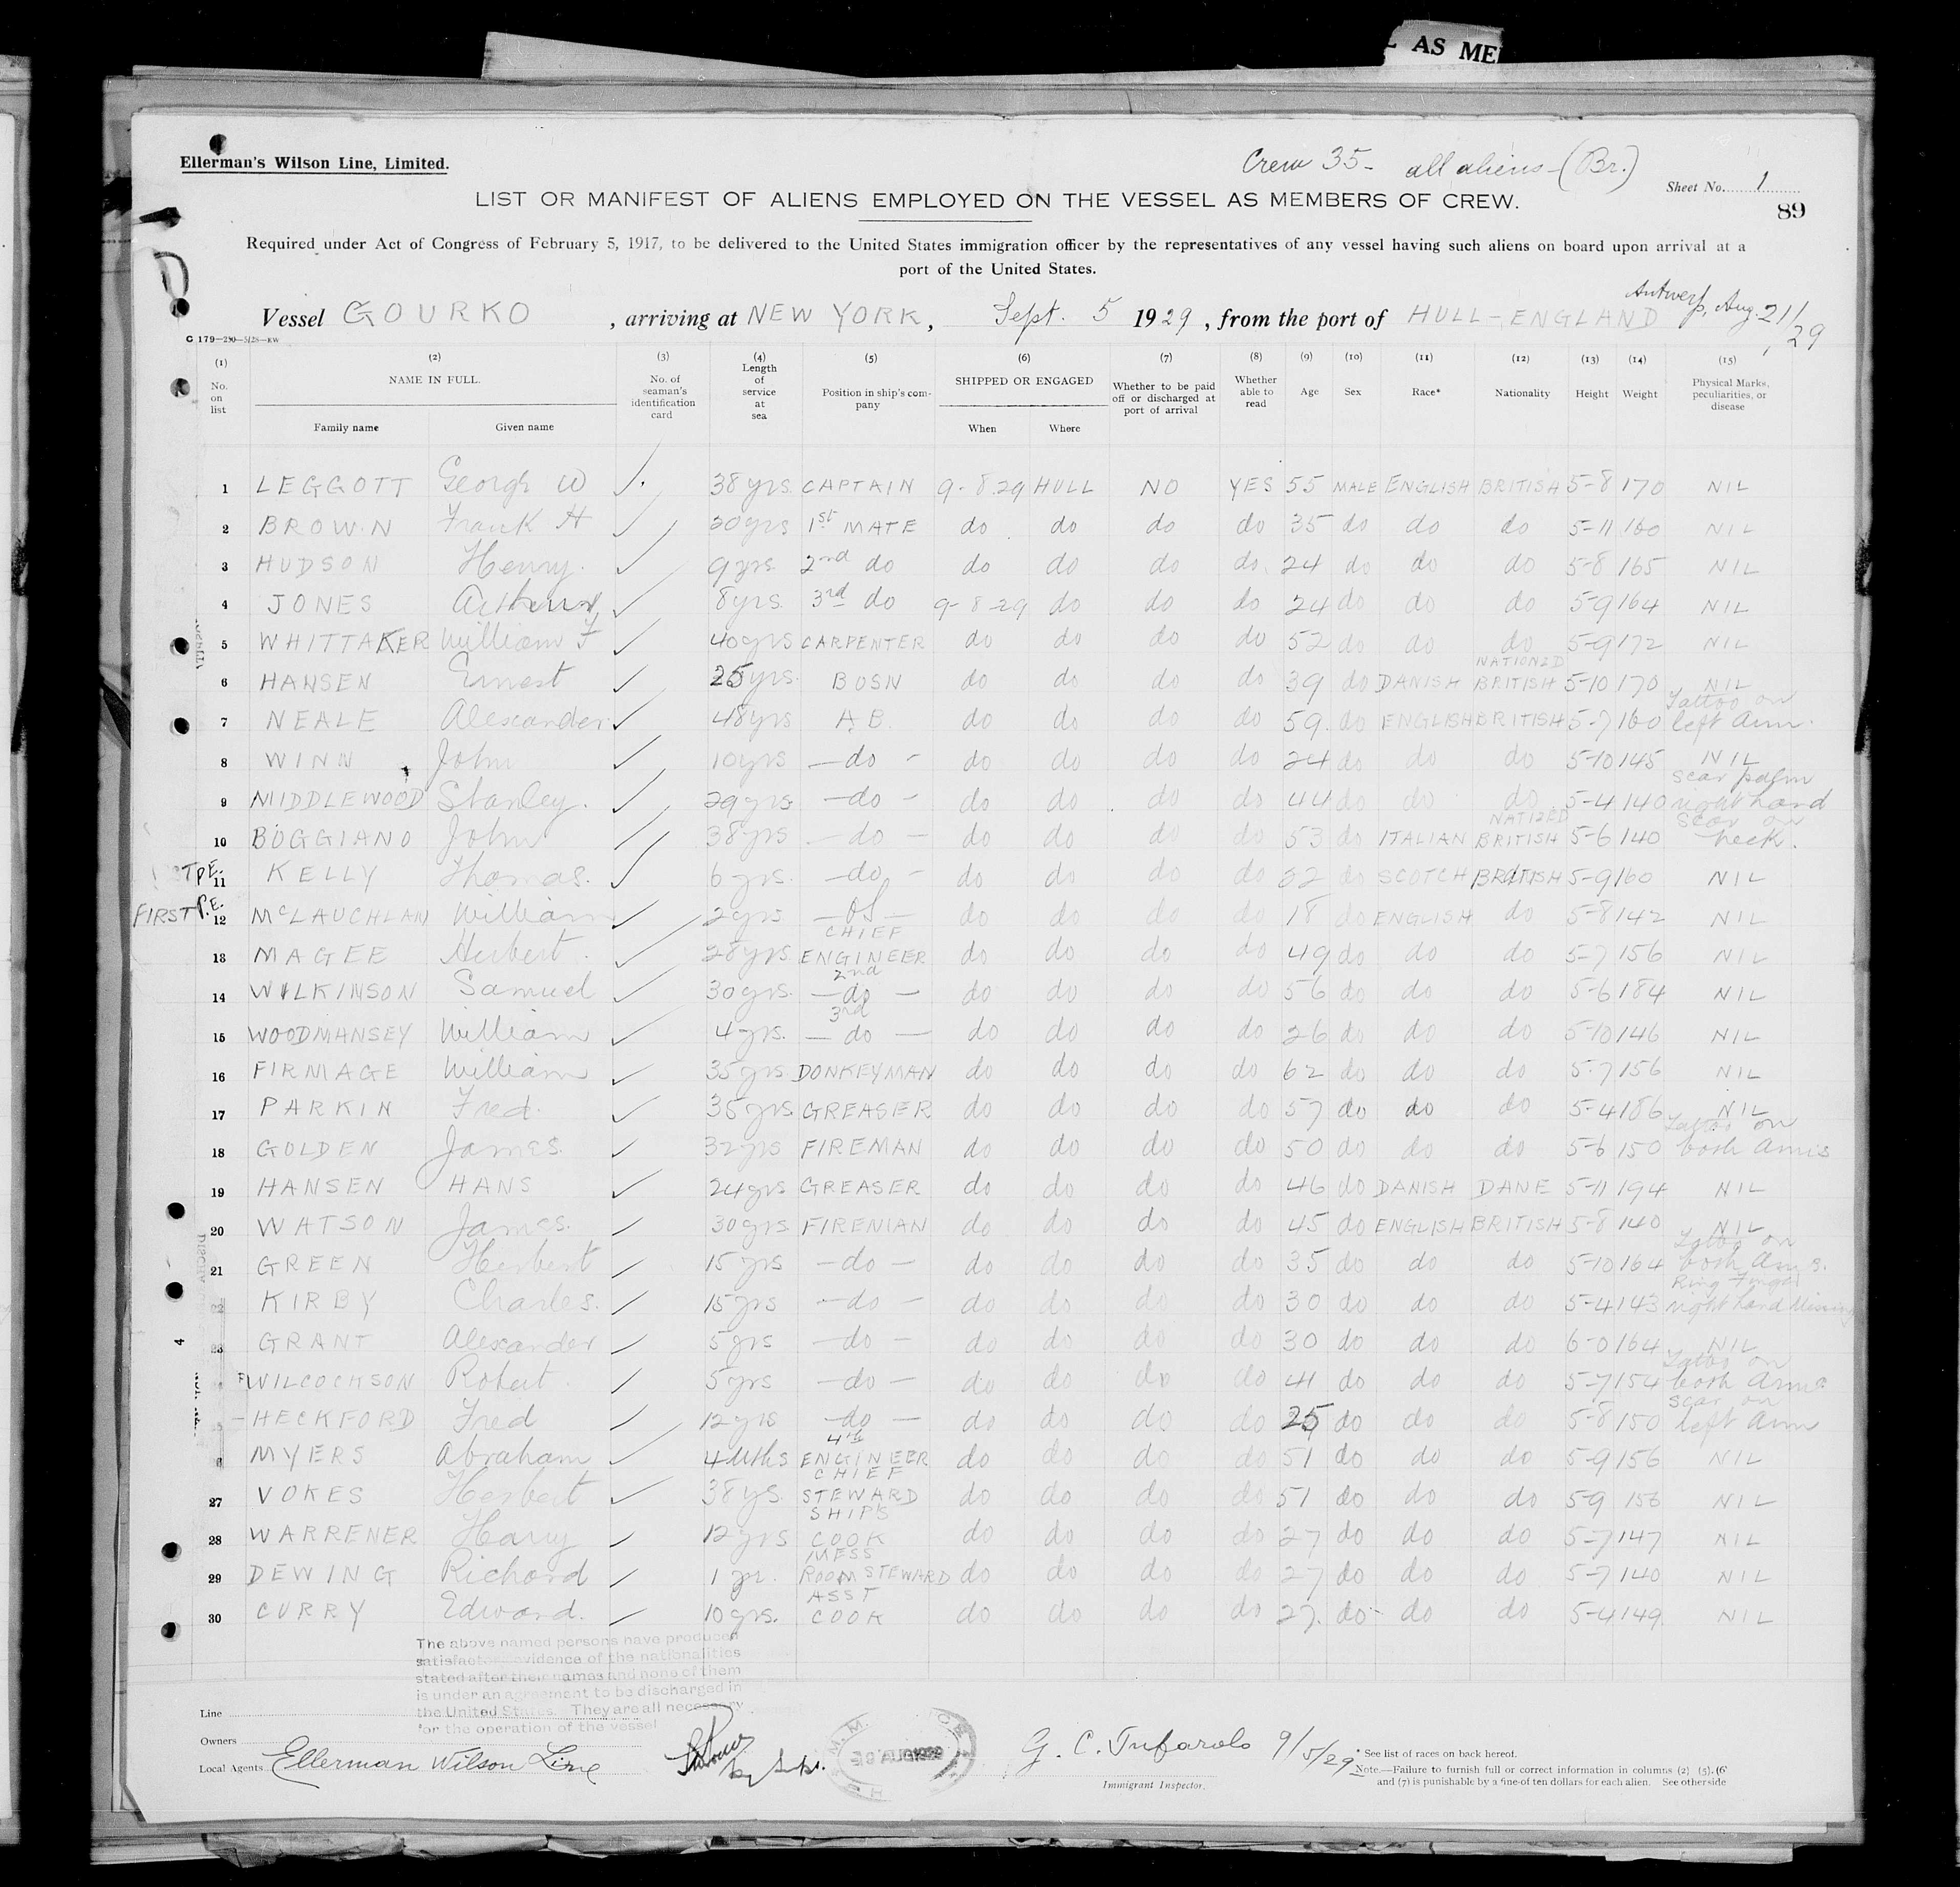 L AS ME
Ellerman's Wilson Line, Limited.
Crew 35- all aliens-(Br.)
Sheet No. 1
LIST OR MANIFEST OF ALIENS EMPLOYED ON THE VESSEL AS MEMBERS OF CREW.
89
Required under Act of Congress of February 5, 1917, to be delivered to the United States immigration officer by the representatives of any vessel having such aliens on board upon arrival at a
port of the United States.
Vessel GOURKO, arriving at NEW YORK, Sept. 5 1929, from the port of HULL-ENGLAND Antwerp, Aug. 21/29
C 179-250-5/28-KW
(1) No. on list (2) NAME IN FULL. Family name Given name (3) No. of seaman's identification card (4) Length of service at sea (5) Position in ship's company (6) SHIPPED OR ENGAGED When Where (7) Whether to be paid off or discharged at port of arrival (8) Whether able to read (9) Age (10) Sex (11) Race* (12) Nationality (13) Height (14) Weight (15) Physical Marks, peculiarities, or disease
1 LEGGOTT George W 38yrs. CAPTAIN 9-8.29 HULL NO YES 55 MALE ENGLISH BRITISH 5-8 170 NIL
2 BROWN Frank H 20yrs 1st MATE do do do do 35 do do do 5-11 160 NIL
3 HUDSON Henry. 9yrs. 2nd do do do do do. 24 do do do 5-8 165 NIL
4 JONES Arthur 8yrs. 3rd do 9-8-29 do do do 24 do do do 5-9 164 NIL
5 WHITTAKER William F 40yrs CARPENTER do do do do 52 do do do 5-9 172 NIL
6 HANSEN Ernest 25yrs. BOSN do do do do 39 do DANISH NATIONZD BRITISH 5-10 170 NIL
7 NEALE Alexander 48yrs A.B. do do do do 59. do ENGLISH BRITISH 5-7 160 Tattoo on left arm.
8 WINN John 10yrs -do- do do do do 24 do do do 5-10 145 NIL
9 MIDDLEWOOD Stanley. 29yrs. -do- do do do do 44 do do do 5-4 140 scar palm right hand
10 BOGGIANO John 38yrs -do- do do do do 53 do ITALIAN NATIZED BRITISH 5-6 140 Scar on neck.
P.E. 11 KELLY Thomas. 6yrs. -do- do do do do 22 do SCOTCH BRITISH 5-9 160 NIL
FIRST P.E. 12 McLAUCHLAN William 2yrs -OS- do do do do 18 do ENGLISH do 5-8 142 NIL
13 MAGEE Herbert. 28yrs. CHIEF ENGINEER do do do do 49 do do do 5-7 156 NIL
14 WILKINSON Samuel 30yrs. 2nd -do- do do do do 56 do do do 5-6 184 NIL
15 WOODMANSEY William 4yrs. 3rd -do- do do do do 26 do do do 5-10 146 NIL
16 FIRMAGE William 35yrs DONKEYMAN do do do do 62 do do do 5-7 156 NIL
17 PARKIN Fred. 35yrs GREASER do do do do 57 do do do 5-4 186 NIL
18 GOLDEN James. 32yrs FIREMAN do do do do 50 do do do 5-6 150 Tattoo on both arms
19 HANSEN HANS 24yrs GREASER do do do do 46 do DANISH DANE 5-11 194 NIL
20 WATSON James. 30yrs FIREMAN do do do do 45 do ENGLISH BRITISH 5-8 140 NIL
21 GREEN Herbert 15yrs -do- do do do do 35 do do do 5-10 164 Tattoo on both arms.
22 KIRBY Charles. 15yrs -do- do do do do 30 do do do 5-4 143 Ring Finger right hand Missing
23 GRANT Alexander 5yrs -do- do do do do 30 do do do 6-0 164 NIL
WILCOCKSON Robert. 5yrs -do- do do do do 41 do do do 5-7 154 Tattoo on both arms
HECKFORD Fred 12yrs -do- do do do do 25 do do do 5-8 150 Scar on left arm
6 MYERS Abraham 4 Mths 4th ENGINEER do do do do 51 do do do 5-9 156 NIL
27 VOKES Herbert 38ys. CHIEF STEWARD do do do do 51 do do do 5-9 156 NIL
28 WARRENER Harry 12yrs SHIPS COOK do do do do 27 do do do 5-7 147 NIL
29 DEWING Richard 1 yr. MESS ROOM STEWARD do do do do 27 do do do 5-7 140 NIL
30 CURRY Edward. 10yrs. ASST COOK do do do do 27. do do do 5-4 149 NIL
The above named persons have produced
satisfactory evidence of the nationalities
stated after their names and none of them
is under an agreement to be discharged in
the United States. They are all necessary
for the operation of the vessel
Line
Owners
Local Agents Ellerman Wilson Line
G. C. Tufarolo 9/5/29
Immigrant Inspector.
* See list of races on back hereof.
Note.—Failure to furnish full or correct information in columns (2) (5) (6)
and (7) is punishable by a fine of ten dollars for each alien. See other side